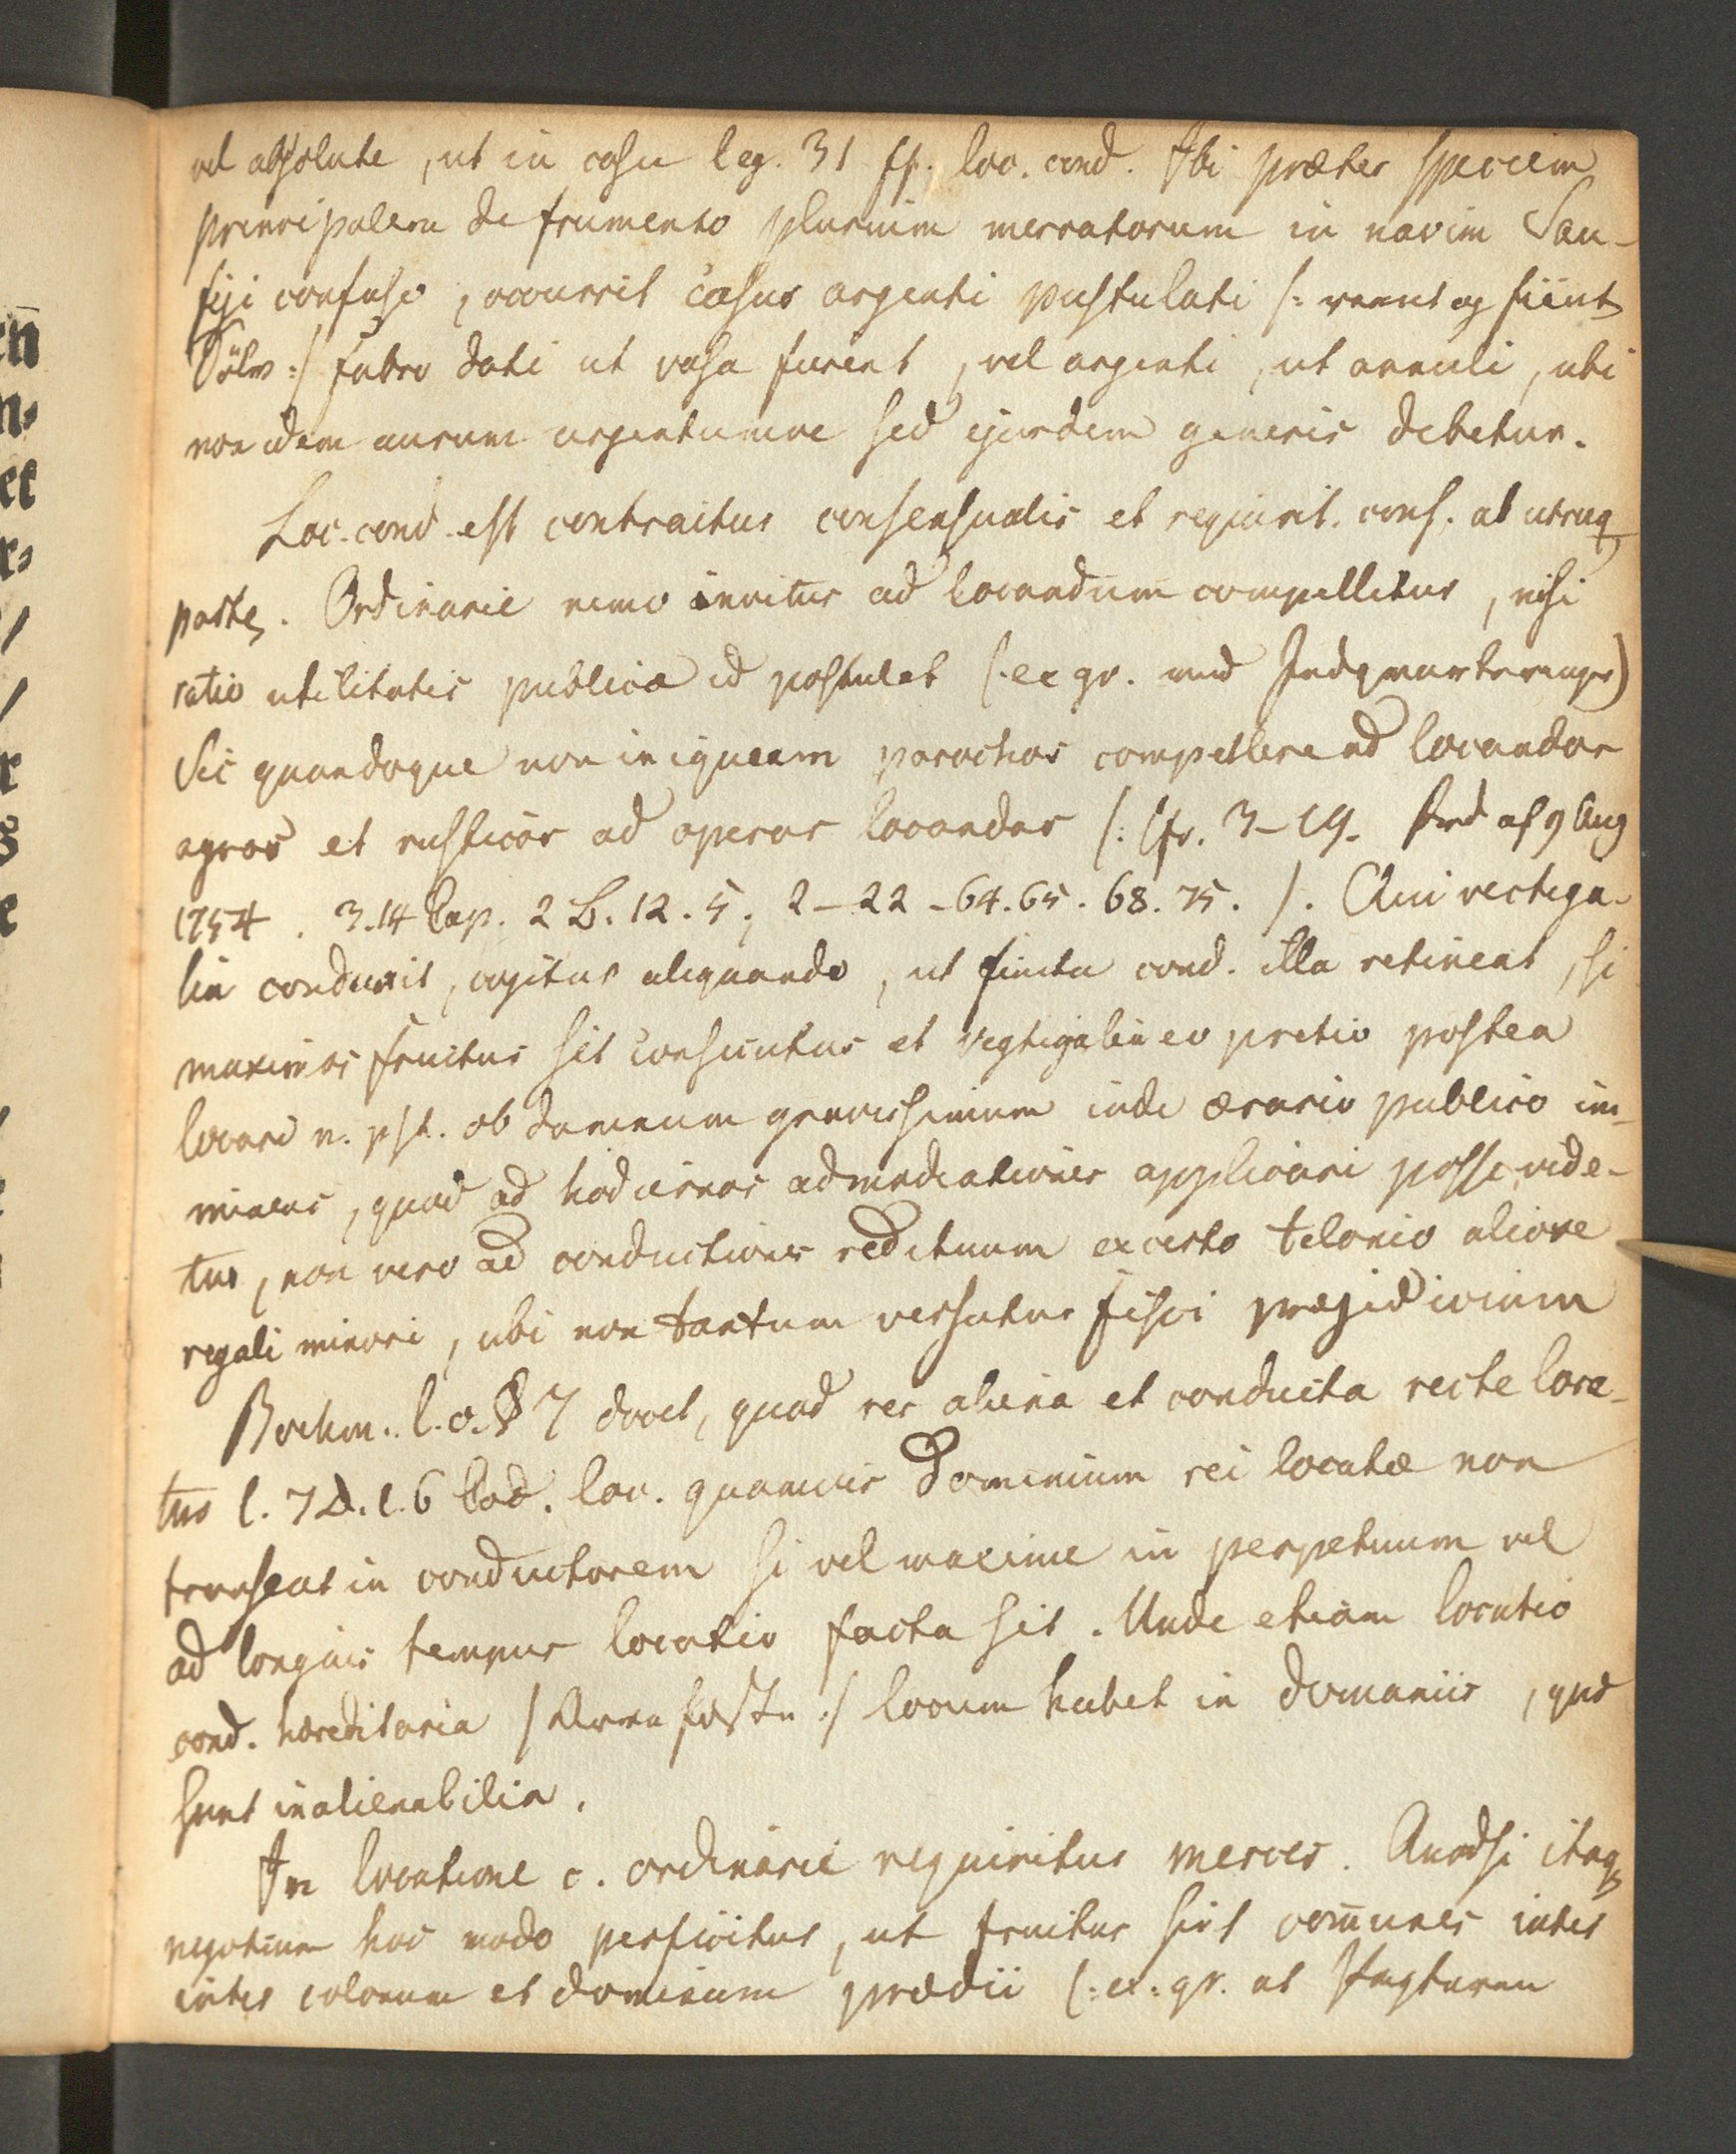 vel absolute, ut in casu leg. 31 ff. loc. cond. Ibi præter speciem
principalem de frumento plurium mercatorum in navim Sau-
feji confuso, occurrit casus argenti pustulati /: reent og fiint
Sölv :/ fabro dati ut vasa fierent, vel argenti, ut annuli, ubi
non idem aurum argentumve sed ejusdem generis debetur.
Loc. cond. est contractus consensualis et requirit. cons. ab utraq
parte. Ordinarie nemo invitus ad locandum compellitur, nisi
ratio utilitatis publicæ id postulet (: ex gr. ved Indqvarteringer)
Sic quandoque non iniquum parochos compellere ad locandos
agros et rusticos ad operas locandas /: Cfr. 3-19. Frd af 9 Aug
1754. 3.14 Cap. 2 B. 12. 5; 2-22-64. 65. 68. 75. /. Qui vectiga-
lia conduxit, cogitur aliquando, ut finita cond. illa retineat, si
maximos fructus sit consecutus et vegtigalia eo pretio postea
locari n. pst. ob damnum gravissimum inde ærario publico im-
minens, quod ad hodiernas admodiationes applicari posse vide-
tur, non vero ad conductiones redituum ex certo telonio aliove
regali minori, ubi non tantum versatur fisci præjudicium
Boehm. l. c. § 7 docet, quod res aliena et conducta recte loce-
tur l. 7 D. l. 6 Cod. loc. quamvis dominium rei locatæ non
transeat in conductorem si vel maxime in perpetuum vel
ad longius tempus locatio facta sit. Unde etiam locatio
cond. hæreditaria /: Arvefæste :/ locum habet in domaniis, quæ
sunt inalienabilia.
In locatione c. ordinarie requiritur merces. Quodsi itaq
negotium hoc modo perficitur, ut fructus sint com̄unes inter
inter colonum et dominum prædii (: ex: gr. at